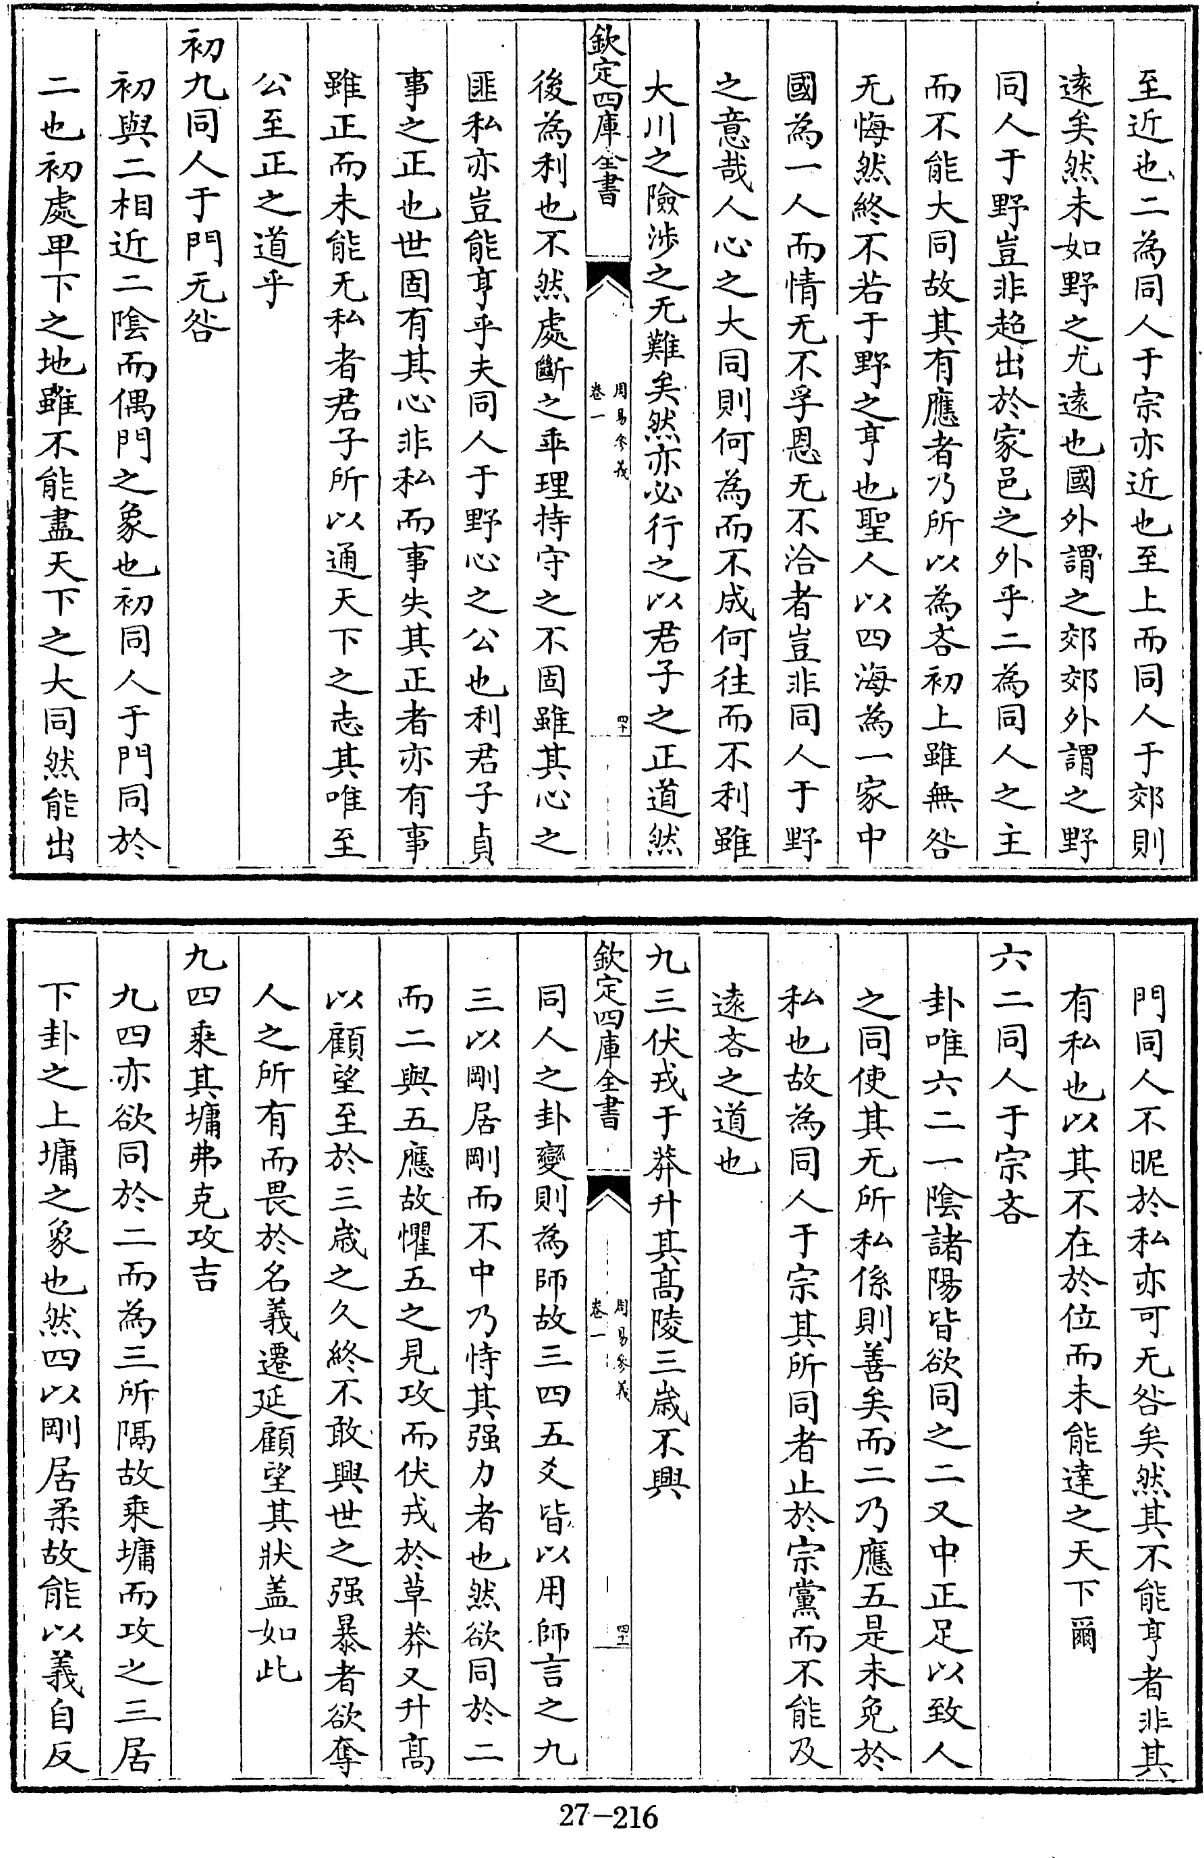 至近也二為同人于宗亦近也至上而同人于郊則
逺矣然未如野之尤逺也國外謂之郊郊外謂之野
同人于野豈非超出於家邑之外乎二為同人之主
而不能大同故其有應者乃所以為吝初上雖無咎
无悔然終不若于野之亨也聖人以四海為一家中
國為一人而情无不孚恩无不洽者豈非同人于野
之意哉人心之大同則何為而不成何往而不利雖
大川之險涉之无難矣然亦必行之以君子之正道然
欽定四庫全書
周易參義
卷一
四十
後為利也不然處斷之乖理持守之不固雖其心之
匪私亦豈能亨乎夫同人于野心之公也利君子貞
事之正也世固有其心非私而事失其正者亦有事
雖正而未能无私者君子所以通天下之志其唯至
公至正之道乎
初九同人于門无咎
初與二相近二陰而偶門之象也初同人于門同於
二也初處卑下之地雖不能盡天下之大同然能出
門同人不昵於私亦可无咎矣然其不能亨者非其
有私也以其不在於位而未能達之天下爾
六二同人于宗吝
卦唯六二一陰諸陽皆欲同之二又中正足以致人
之同使其无所私係則善矣而二乃應五是未免於
私也故為同人于宗其所同者止於宗黨而不能及
逺吝之道也
九三伏戎于莽升其髙陵三歳不興
欽定四庫全書
周易參義
卷一
四十一
同人之卦變則為師故三四五爻皆以用師言之九
三以剛居剛而不中乃恃其强力者也然欲同於二
而二與五應故懼五之見攻而伏戎於草莽又升髙
以顧望至於三歳之久終不敢興世之强暴者欲奪
人之所有而畏於名義遷延顧望其狀盖如此
九四乘其墉弗克攻吉
九四亦欲同於二而為三所隔故乘墉而攻之三居
下卦之上墉之象也然四以剛居柔故能以義自反
27-216